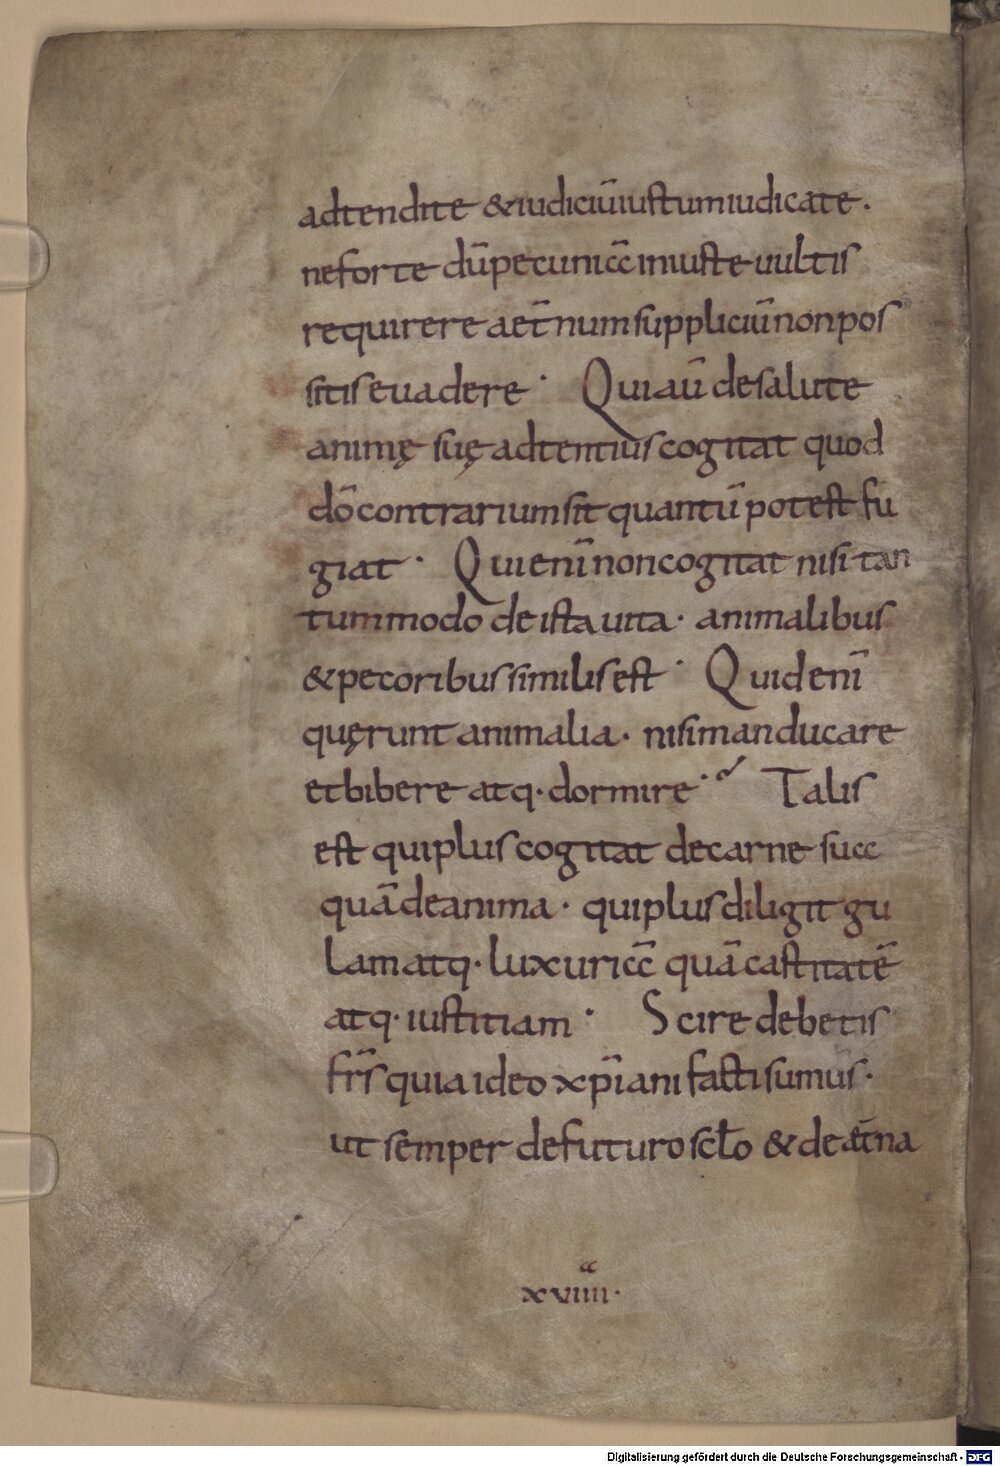 adtendite & iudiciū iustum iudicate.
ne forte dū pecuniā iniuste uultis
requirere aet̄num suppliciū non pos
sitis euadere· Qui aū de salute
animę suę adtentius cogitat quod
dō contrarium sit quantū potest fu
giat· Qui enī non cogitat nisi tan
tummodo de ista uita· animalibus
& pecoribus similis est· Quid enī
quęrunt animalia· nisi manducare
et bibere atq· dormire·? Talis
est qui plus cogitat de carne sua
quā de anima· qui plus diligit gu
lam atq· luxuriā quā castitatē
atq· iustitiam· Scire debetis
fr̄s quia ideo xp̄iani facti sumus·
ut semper de futuro scło & de aet̄na
xviiii·
a
Digitalisierung gefördert durch die Deutsche Forschungsgemeinschaft - DFG